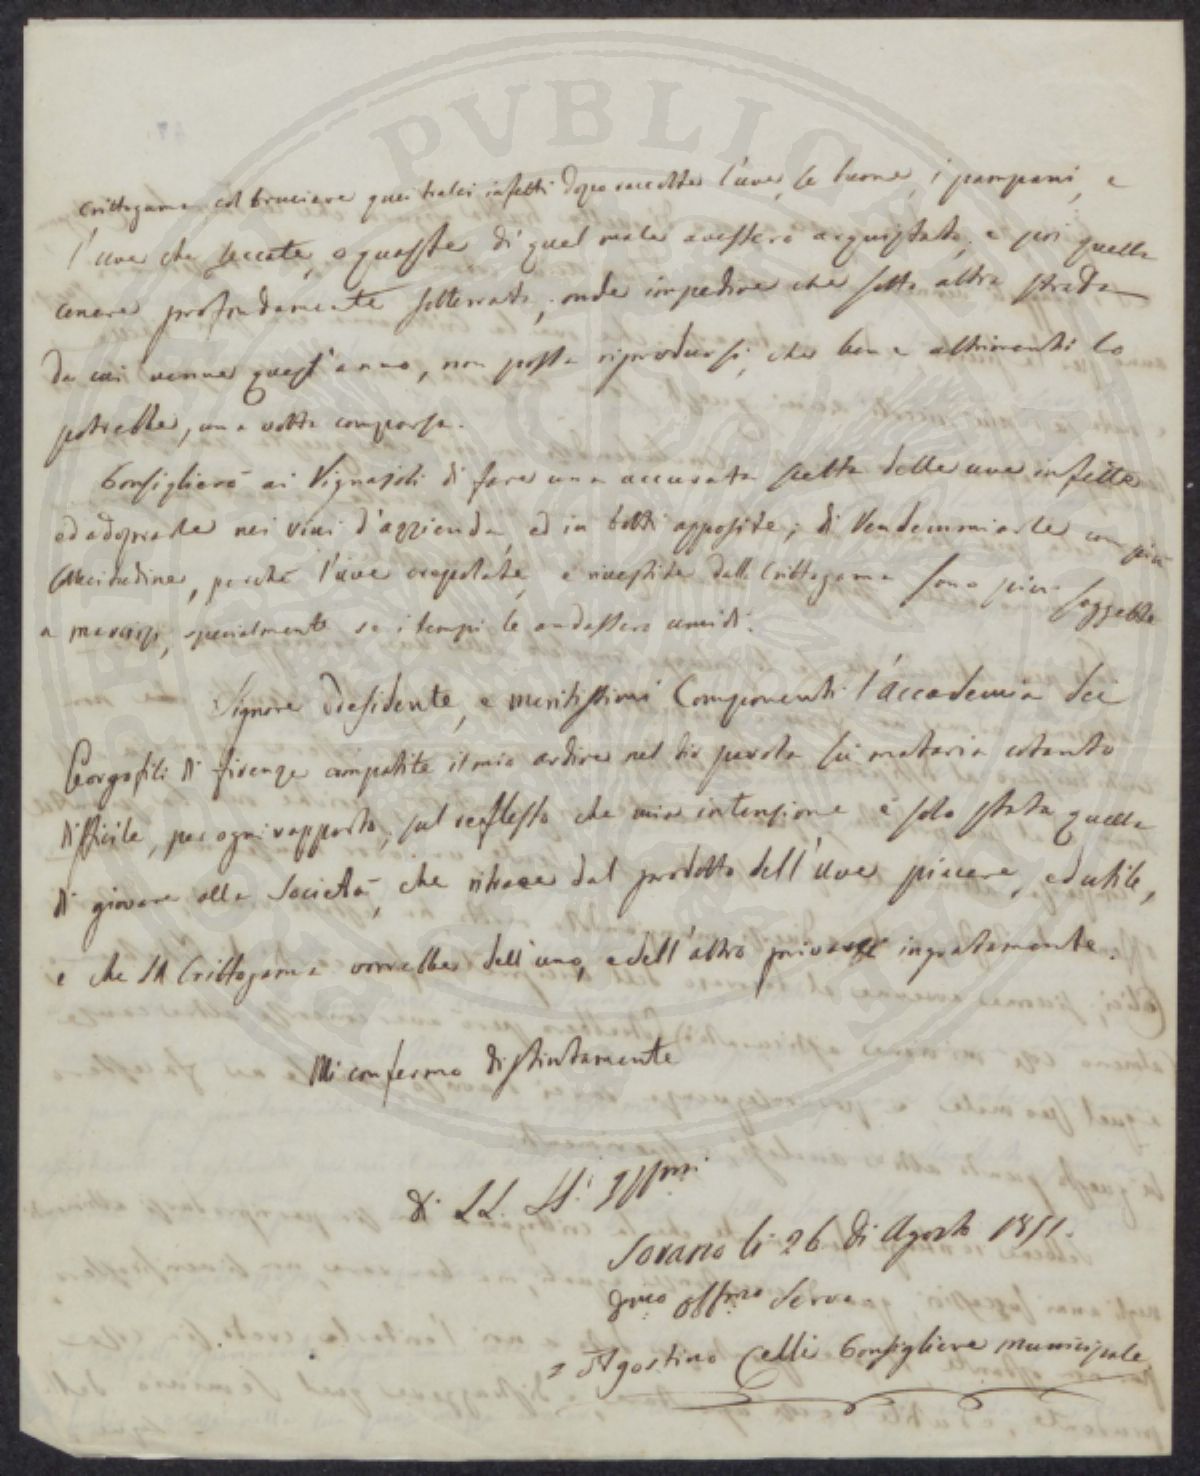 Crittogama col bruciare quei tralci infetti dopo raccolte l'uve, le buone, i pampani, e
l'uve che seccate, o guaste di quel male avessero acquistato, e poi quella
cenere profondamente sotterrata, onde impedire che sotto altra strada
da cui venne quest'anno, non possa riprodursi, che ben altrimenti lo
potrebbe, una volta comparsa.
Consiglierò ai Vignajoli di fare una accurata scelta delle uve infette
ed adoprarle nei vini d'azzienda, ed in botti apposite; di Vendemmiarle con più
sollecitudine, perchè l'uve crepolate, e rivestite dalla Crittogama sono più soggette
a marcirsi, specialmente se i tempi le andassero umidi.
Signore Presidente, e meritissimi Componenti l'accademia dei
Georgofili di firenze compatite il mio ardire nel far parola su materia cotanto
difficile, per ogni rapporto, sul reflesso che mia intenzione è solo stata quella
di giovare alla Società, che ritrae dal prodotto dell'uve piacere, ed utile,
e che la Crittogama vorrebbe dell'uno, e dell'altro privare ingratamente.
Mi confermo distintamente
di LL. SS.
Sorano li 26 di Agosto 1851.
Servo
Agostino Celli Consigliere Municipale
PVBLICE